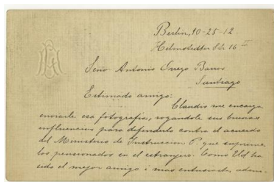 Berlin, 10-25-12
Señor Antonio Orrego Barros
Santiago
Estimado amigo:
Claudio me encarga
enviarle esa fotografia, rogandole sus buenas
influencias para defenderlo contra el acuerdo
del Ministerio de Instruccion P. que suprime
los pensionados en el estranjero. Como Ud ha
sido el mejor amigo i